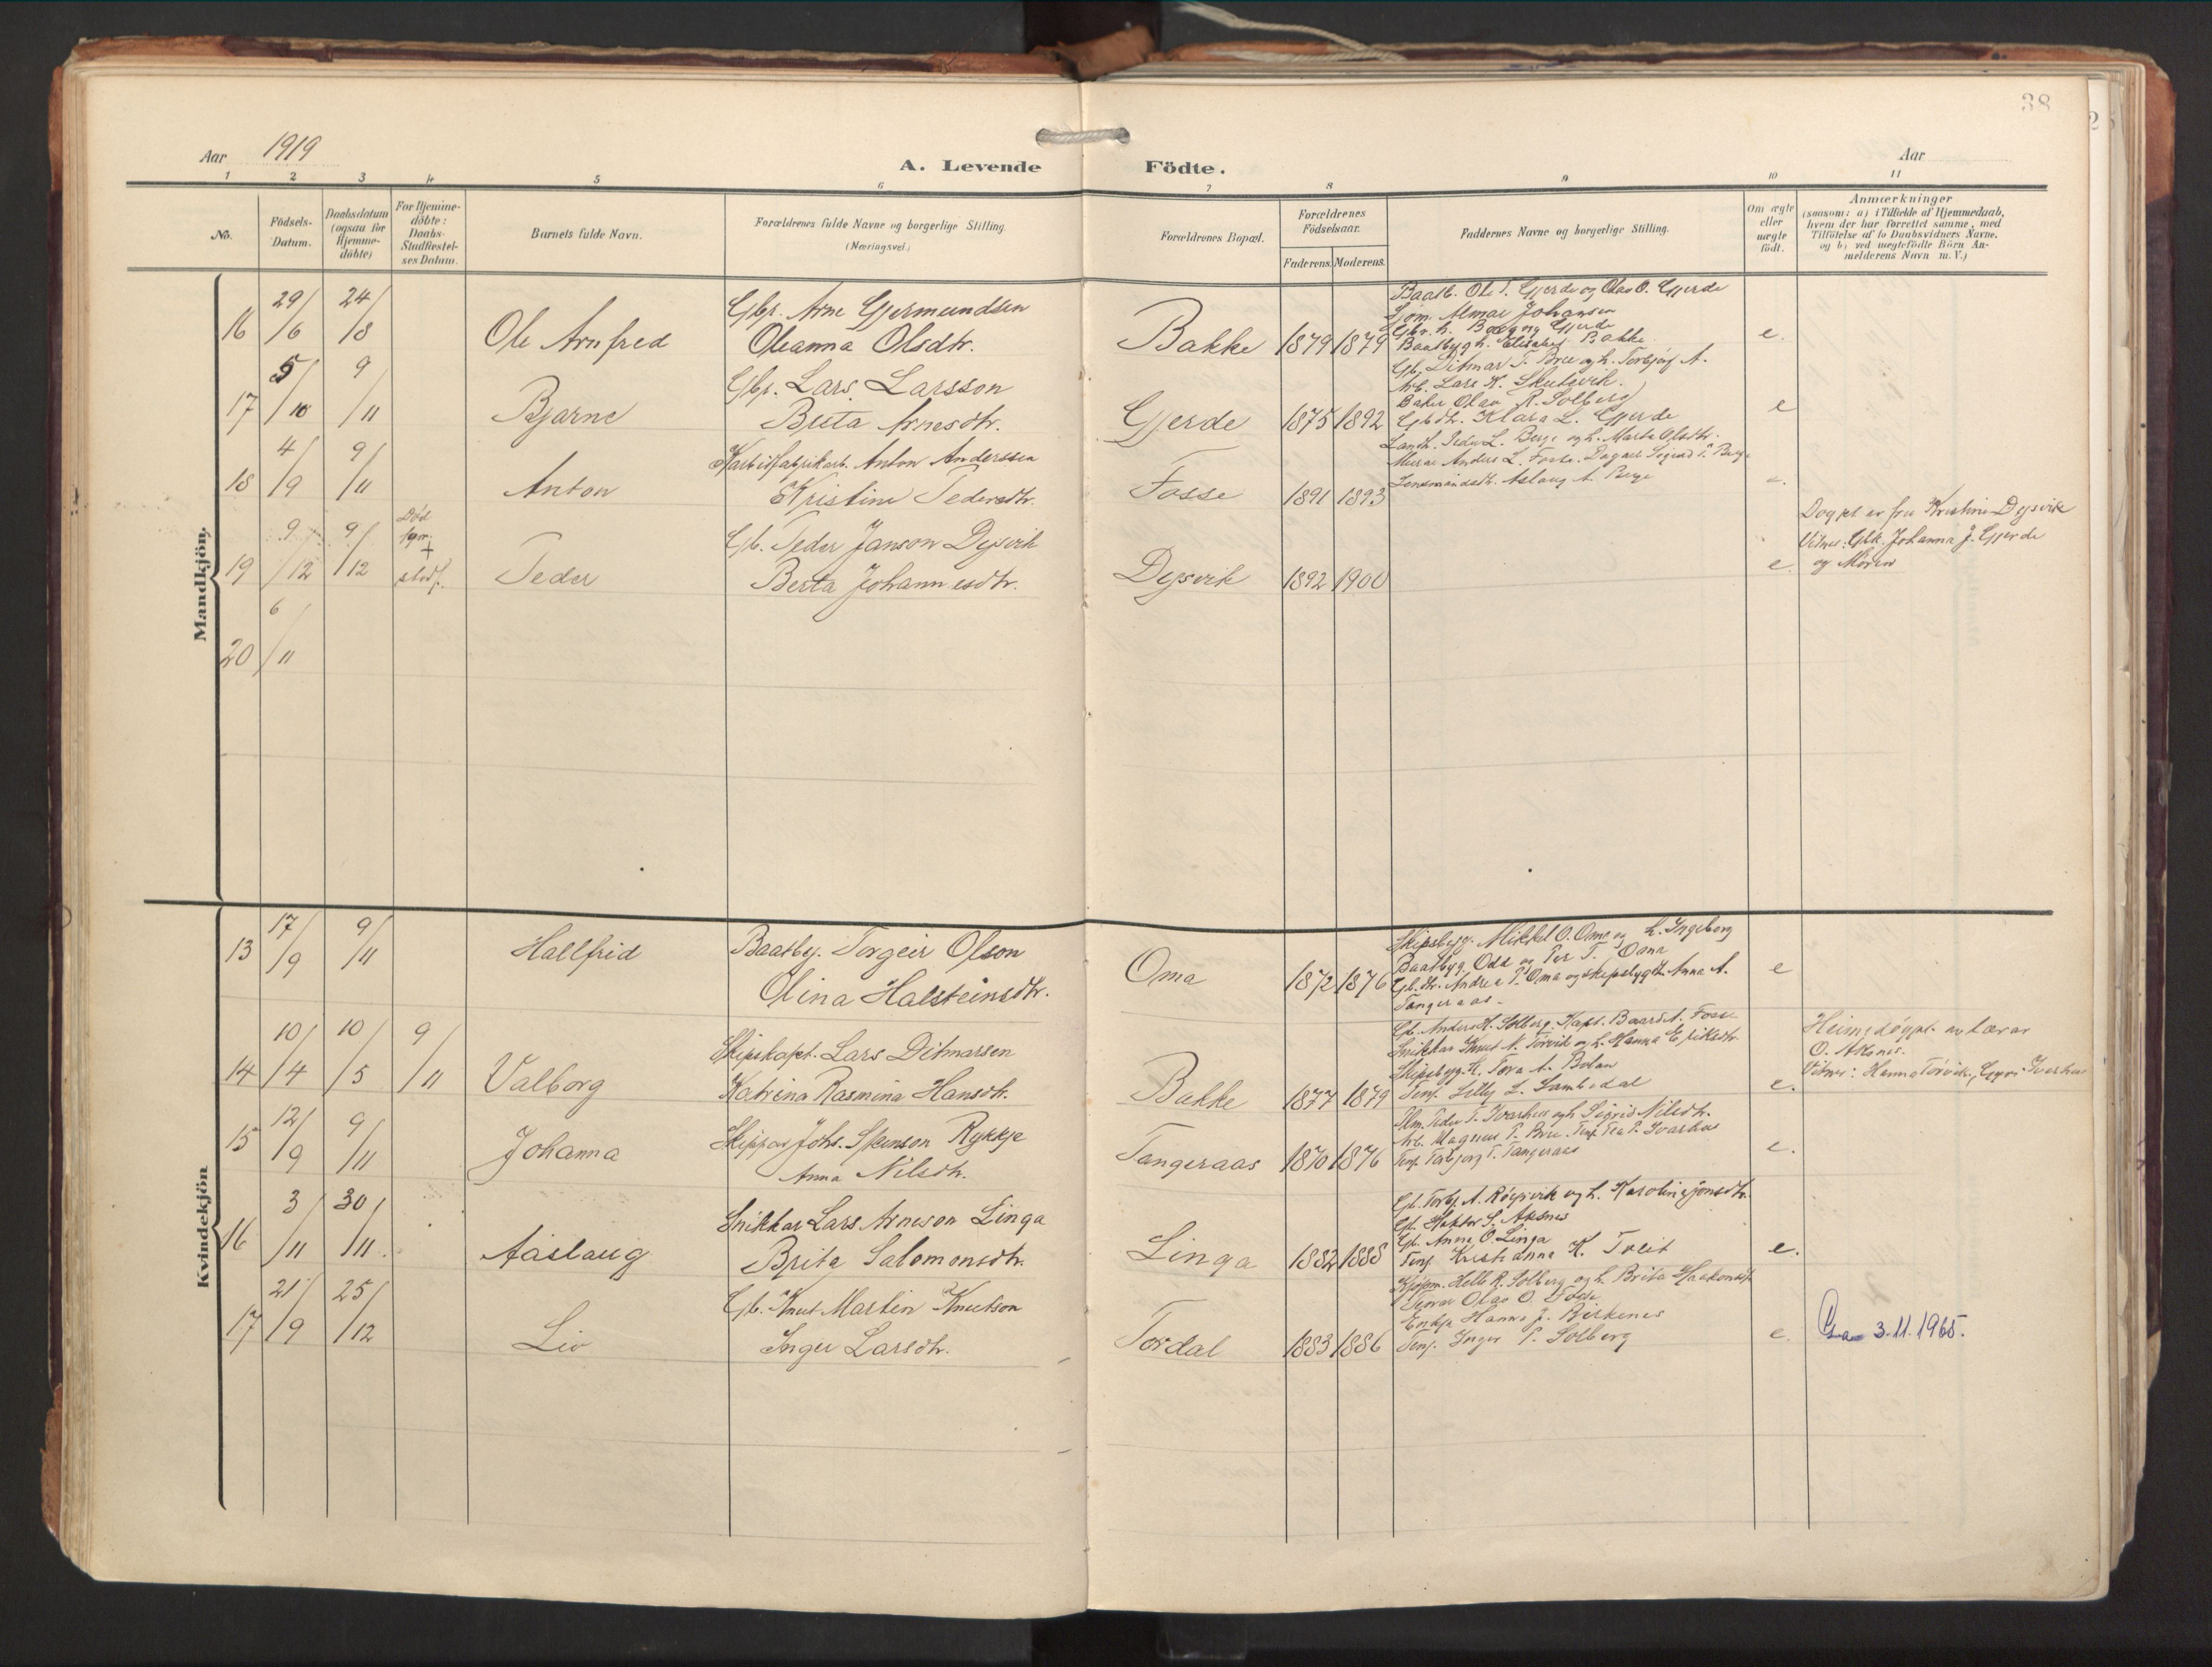 38
Aar 1919
A. Levende Födte.
Aar
1 2 3 4 5 6 7 8 9 10 11
No.
Födsels-Datum.
Daabsdatum (ogsaa for Hjemme-döbte)
For Hjemme-döbte: Daabs-Stadfæstel-ses Datum.
Barnets fulde Navn.
Forældrenes fulde Navne og borgerlige Stilling.
(Næringsvei.)
Forældrenes Bopæl.
Forældrenes Födselsaar.
Faderens. Moderens.
Faddernes Navne og borgerlige Stilling.
Om ægte eller uægte födt.
Anmærkninger
(saasom: a) i Tilfælde af Hjemmedaab,
hvem der har forrettet samme, med
Tilföielse af to Daabsvidners Navne.
og b) ved uægtefödte Börn An-
melderens Navn m. V.)
Mandkjön.
16 29/6 24/8 Ole Arnfred
Gbr. Arne Gjermundsen
Oleanna Olsdtr.
Bakke 1879 1879
Baatb. Ole T. Gjerde og Olav O. Gjerde
Sjøm. Almar Johansen
Baatbygh. Elisabet Bakke
e.
17 5/10 9/11 Bjarne
Gbr. Lars Larsson
Brita Arnesdtr.
Gjerde 1875 1892
Gb. Ditmar T. Bree og h. Torbjørg A.
Arb. Lars K. Skutevik.
Baker Olav R. Solberg
Gbdtr. Klara L. Gjerde
e
18 4/9 9/11 Anton
Karbidfabrikarb. Anton Anderssen
Kristine Pedersdtr.
Fosse 1891 1893
Landh. Peder L. Berge og h. Marta Olsdtr.
Murar Anders L. Fosse.
Lensmandsdtr. Aslaug A. Berge
e.
19 9/12 9/12 Død før stadf. Peder
Gb. Peder Janson Dysvik
Berta Johannesdtr.
Dysvik 1892 1900
e.
Døypt av fru Kristine Dysvik
Vitner: Gbk. Johanna J. Gjerde
og Moren
20 6/11
Kvindekjön
13 17/9 9/11 Hallfrid
Baatby. Torgeir Olson
Olina Halsteinsdtr.
Oma 1872 1876
Skipsbygg. Mikkel O. Oma og h. Ingeborg
Baatbyg. Odd og Per T. Oma
Gb.dtr. Andrea P. Oma og skipsbygdt. Anna A.
Tangeraas.
e
14 10/4 10/5 9/11 Valborg
Skipskapt. Lars Ditmarsen
Katrina Rasmina Hansdtr.
Bakke 1877 1879
Gb. Anders H. Solberg. Kapt. Baard A. Fosse
Snikkar Knut N. Tørvik og h. Hanna Eriksdtr.
Tora A. Bolan
Tenj. Lilly L. Sambedal
e.
Heimedøypt av Lærar
O. Aksnes.
Vitner: Hanna Tørvik, Ivarhus
15 12/9 9/11 Johanna
Skippar Johs. Steinson Rykkje
Anna Nilsdtr.
Tangeraas 1870 1876
Peder T. Ivarhus og h. Sigrid Nilsdtr.
Arb. Magnus T. Bree. Tenj. Tea P. Ivarhus
Tenj. Torbjørg T. Tangeraas
e.
16 3/11 30/11 Aaslaug
Snikkar Lars Arneson Linga
Brita Salomonsdtr.
Linga 1882 1888
Gb. Torbj. A. Røysvik og h. Karolina Jonsdtr.
Gb. Haktor S. Aksnes
Gb. Anna O. Linga
Tenj. Kristianna K. Tveit
e.
17 21/9 25/12 Liv
Gb. Knut Martin Knutson
Inger Larsdtr.
Tørdal 1883 1886
Kjøpm. Helle R. Solberg og h. Brita Haakonsdtr
Olav O.
Enkja Hanna J. Birkenes
Tenj. Inger P. Solberg
e.
3.11.1965.